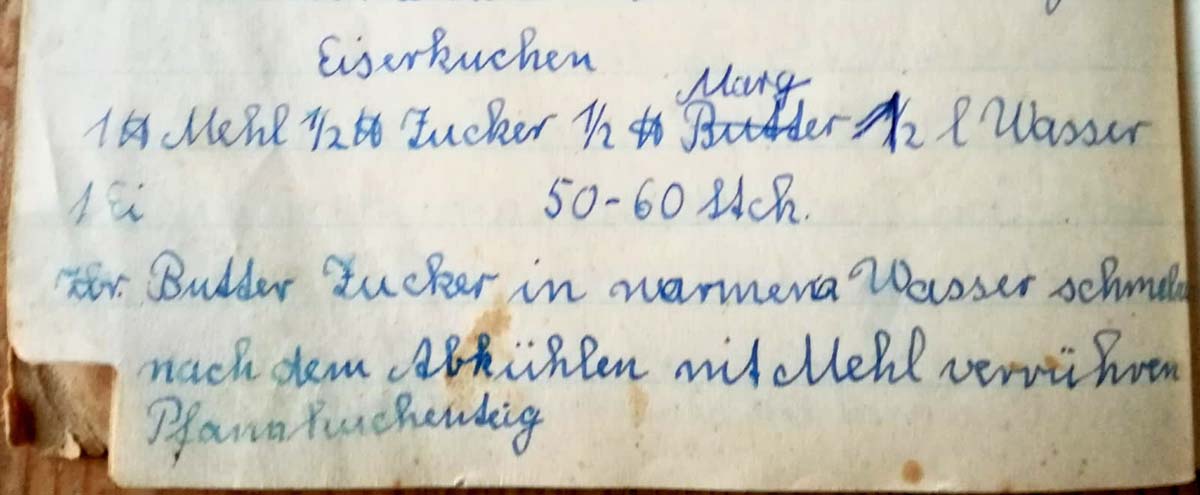 Eiserkuchen
Marg
1 ℔ Mehl 1/2 ℔ Zucker 1/2 ℔ Butter 1/2 l Wasser
1 Ei 50-60 Stck.
Butter Zucker in warmem Wasser schmelz
nach dem Abkühlen mit Mehl verrühren
Pfannkuchenteig